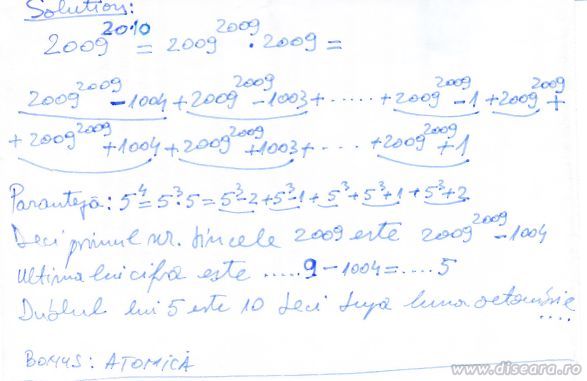 Solution:
2009^2010 = 2009^2009 · 2009 =
2009^2009 - 1004 + 2009^2009 - 1003 + ...... + 2009^2009 - 1 + 2009^2009 +
+ 2009^2009 + 1004 + 2009^2009 + 1003 + .... + 2009^2009 + 1
Paranteză: 5^4 = 5^3 · 5 = 5^3 - 2 + 5^3 - 1 + 5^3 + 5^3 + 1 + 5^3 + 2
Deci primul nr. din cele 2009 este 2009^2009 - 1004
Ultima lui cifră este ..... 9 - 1004 = .... 5
Dublul lui 5 este 10 deci luna octombrie
....
BONUS: ATOMICĂ
www.diseara.ro